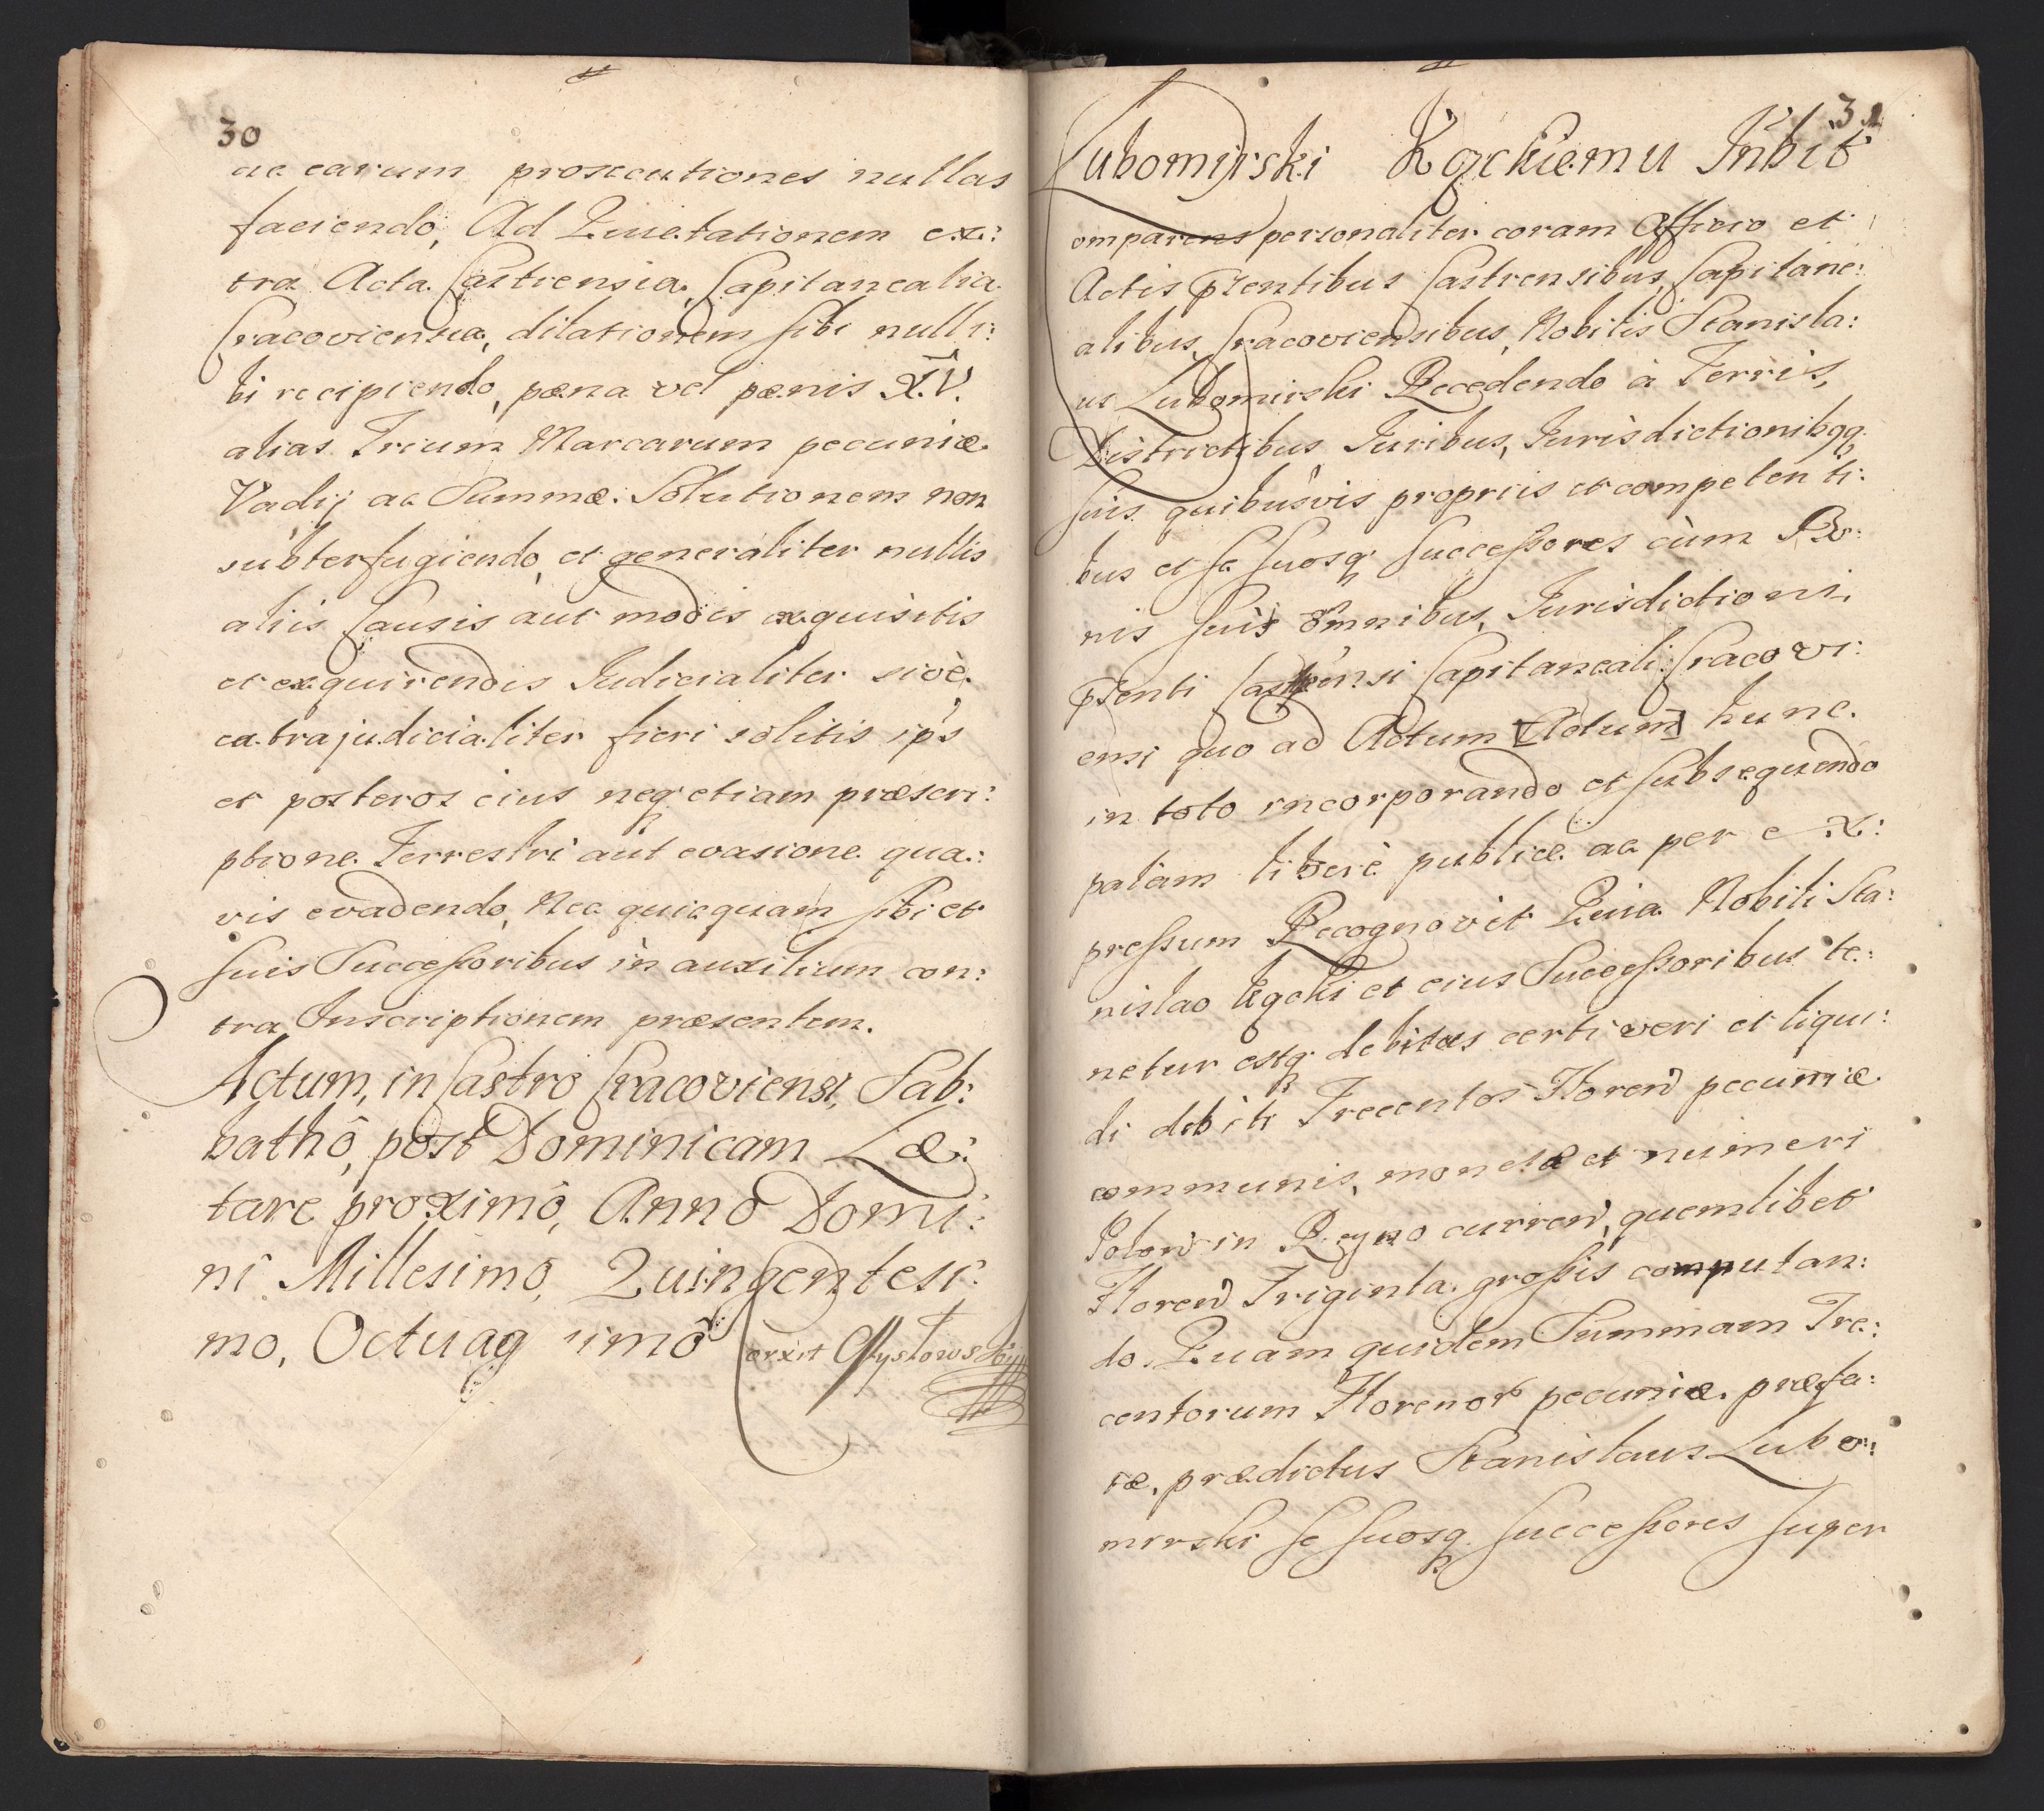 30
ac earum prosecutiones nullas
faciendo, Ad Quietationem ex:
tra Acta Castrensia Capitanealia
Cracoviensia, dilationem sibi nulli:
bi recipiendo, pæna vel pænis X.V.
alias Trium Marcarum pecuniæ
Vadij ac Summæ Solutionem non
subterfugiendo, et generaliter nullis
aliis Causis aut modis exquisitis
et exquirendis Judicialiter sivè
extrajudicialiter fieri solitis ips
et posteros eius neq etiam præscri:
ptione Terrestri aut evasione qua:
vis evadendo, Nec quicquam sibi et
suis Successoribus in auxilium con:
tra Inscriptionem præsentem.
Actum, in Castro Cracoviensi, Sab:
bathô, post Dominicam Læ:
tare proximô, Annô Domi:
ni Millesimô, Quingentesi:
mo, Octuag imô Corxit
31
Lubomirski Kąckiemu Inbit
omparens personaliter coram Officio et
Actis psentibus Castrensibus, Capitane:
alibus, Cracoviensibus, Nobilis Stanisla:
us Lubomirski Recedendo à Terris,
Districtibus Juribus, Jurisdictionibqq
suis quibusvis propriis et competenti:
bus et se suosq successores cùm Bo:
nis suis omnibus, Jurisdictioni,
psenti Castrensi Capitaneali Cracovi:
ensi quo ad Actum [Actum] hunc
in toto incorporando et subsequendo
palam liberè publicè ac per ex:
pressum Recognovit Quia Nobili Sta:
nislao Kącki et eius Successoribus te:
netur estq debitus certi veri et liqui:
di debiti Trecentos Floren pecuniæ
communis, monetæ et numeri
Polon in Regno curren, quemlibet
Floren Triginta grossis computan:
do. Quam quidem Summam Tre:
centorum Florenor pecuniæ præfa:
tæ, prædictus Stanislaus Lubo:
mirski se suosq successores super